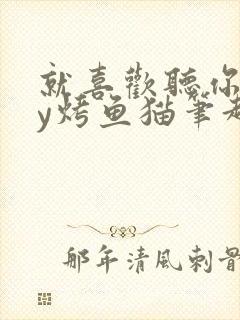 就喜歡聽你
y烤鱼猫筆趣
那年清風刺骨